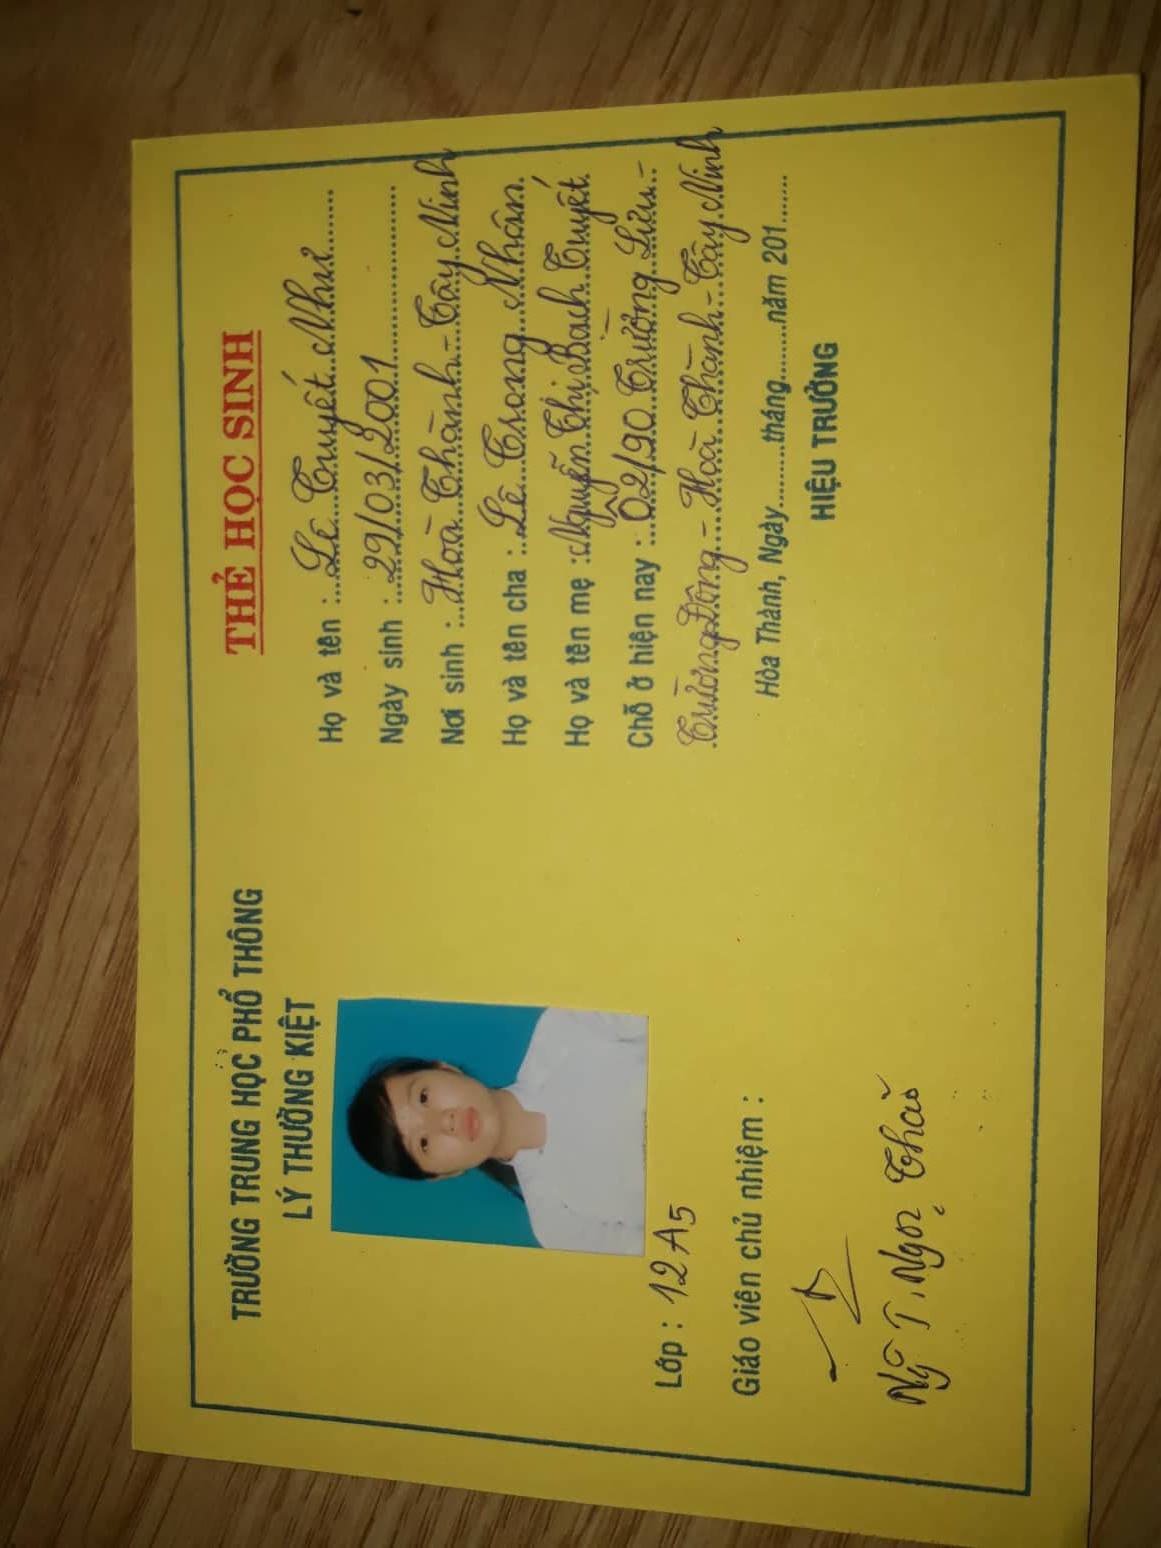 TRƯỜNG TRUNG HỌC PHỔ THÔNG
LÝ THƯỜNG KIỆT
Lớp : 12A5
Giáo viên chủ nhiệm :
Ng T. Ngọc Thảo
THẺ HỌC SINH
Họ và tên : Lê Tuyết Như
Ngày sinh : 29/03/2001
Nơi sinh : Hoà Thành - Tây Ninh
Họ và tên cha : Lê Trọng Nhân
Họ và tên mẹ : Nguyễn Thị Bạch Tuyết
Chỗ ở hiện nay : 02/90 Trường Lưu -
Trường Đông - Hoà Thành - Tây Ninh
Hòa Thành, Ngày.........tháng.........năm 201......
HIỆU TRƯỞNG